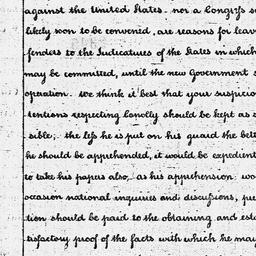 against the United States. nor a Congress
likely soon to be convened, are reasons for leav
fenders to the Judicatures of the States in which
may be committed, until the new Government
operation. We think it best that your suspicio
tentions respecting Conolly should be kept as
sible; the less he is put on his guard the bett
he should be apprehended, it would be expedient
to take his papers also, as his apprehension wo
occasion national inquiries and discussions, pre
tion should be paid to the obtaining and esta
tisfactory proof of the facts with which he may